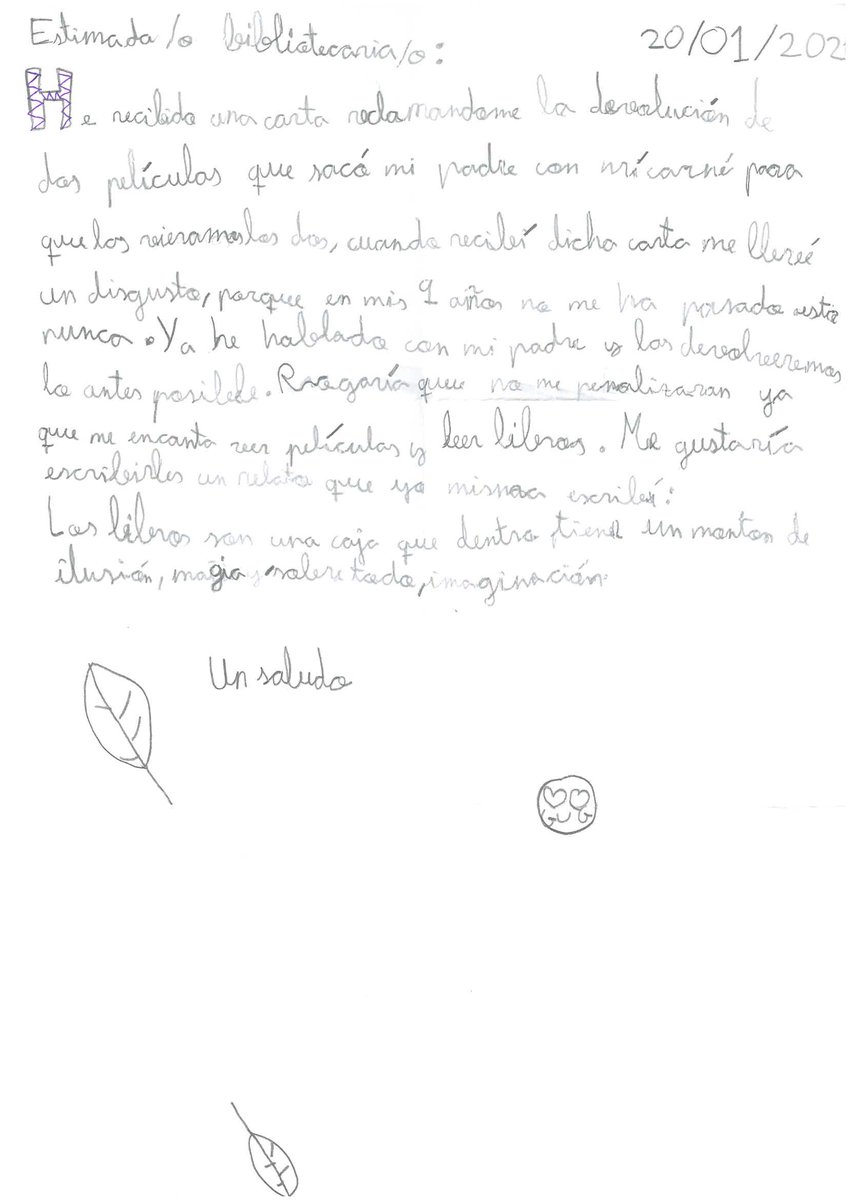 Estimada/o bibliotecaria/o: 20/01/202
He recibido una carta reclamandome la devolución de
dos películas que sacó mi padre con mi carné para
que las vieramos los dos, cuando recibí dicha carta me llevé
un disgusto, porque en mis 9 años no me ha pasado esto
nunca. Ya he hablado con mi padre y las devolveremos
lo antes posible. Rogaría que no me penalizaran ya
que me encanta ver películas y leer libros. Me gustaría
escribirles un relato que yo misma escribí:
Los libros son una caja que dentro tiene un monton de
ilusión, magia y sobre todo, imaginación.
Un saludo